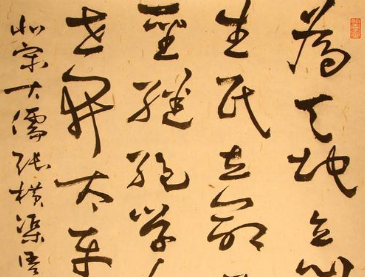 為天地立心
生民立命
聖繼絕學
世開太平
北宋大儒張橫渠語